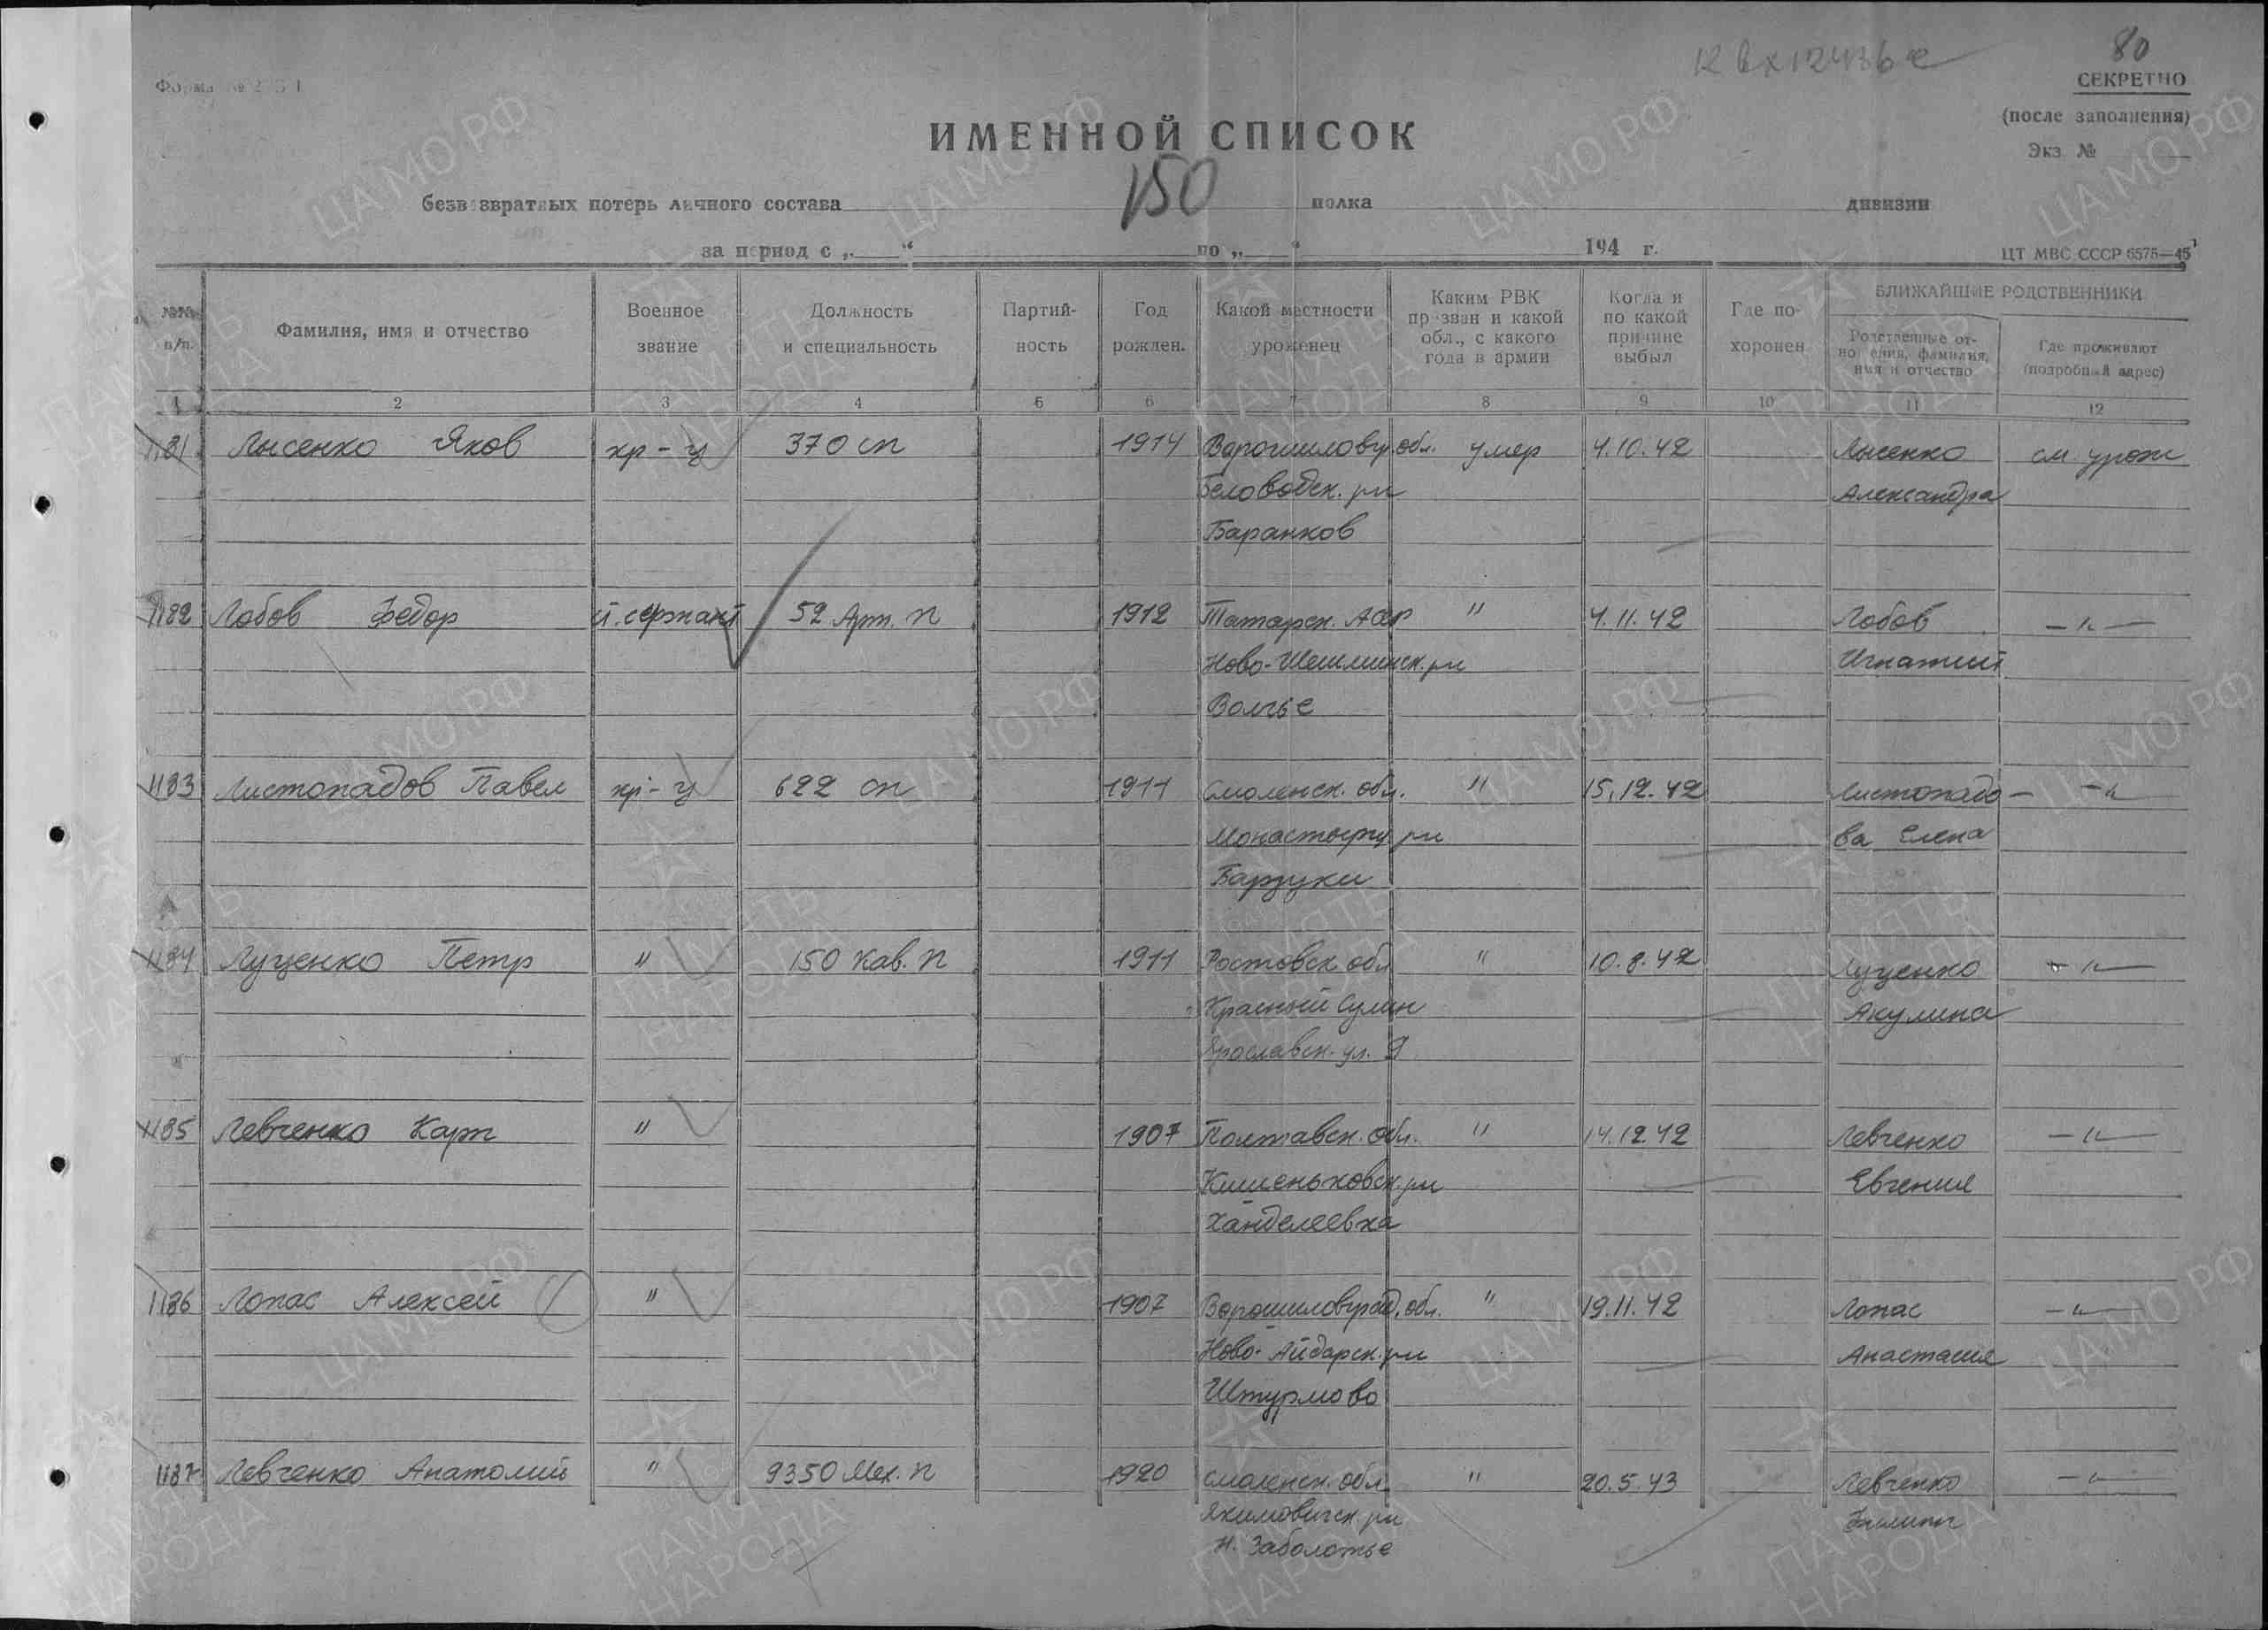 80
СЕКРЕТНО
(после заполнения)
Экз. №
ИМЕННОЙ СПИСОК
150
безвозвратных потерь личного состава полка дивизии
за период с „ “ по „ “ 194 г.
ЦТ МВС СССР 6575—45
№№ п/п.
Фамилия, имя и отчество
Военное звание
Должность и специальность
Партий-ность
Год рожден.
Какой местности уроженец
Каким РВК призван и какой обл., с какого года в армии
Когда и по какой причине выбыл
Где по-хоронен
БЛИЖАЙШИЕ РОДСТВЕННИКИ
Родственные от-ношения, фамилия, имя и отчество
Где проживают (подробный адрес)
1 2 3 4 5 6 7 8 9 10 11 12
1181 Лысенко Яков кр-ц 370 сп 1914 Ворошиловгр. обл. умер 4.10.42 Лысенко см. урож
Беловодск. рн Александра
Баранков
1182 Лобов Федор сержант 52 Арт. п 1912 Татарск. Аср " 4.11.42 Лобов — " —
Ново-Шешминск. рн Игнатий
Волчье
1183 Листопадов Павел кр-ц 622 сп 1911 Смоленск. обл. " 15.12.42 Листопадо- — "
Монастырщ. рн ва Елена
Барсуки
1184 Луценко Петр " 150 Кав. п 1911 Ростовск обл " 10.8.42 Луценко — " —
Красный Сулин Акулина
Ярославск. ул. 9
1185 Левченко Карп " 1907 Полтавск. обл. " 14.12.42 Левченко — " —
Кишеньковск. рн Евгения
Ханделеевка
1186 Лопас Алексей " 1907 Ворошиловград. обл. " 19.11.42 Лопас — " —
Ново-Айдарск. рн Анастасия
Штурмово
1187 Левченко Анатолий " 9350 Мех. п 1920 Смоленск. обл. " 20.5.43 Левченко — " —
Якимовичск. рн Филипп
Н. Заболотье
ЦАМО.РФ
ПАМЯТЬ НАРОДА